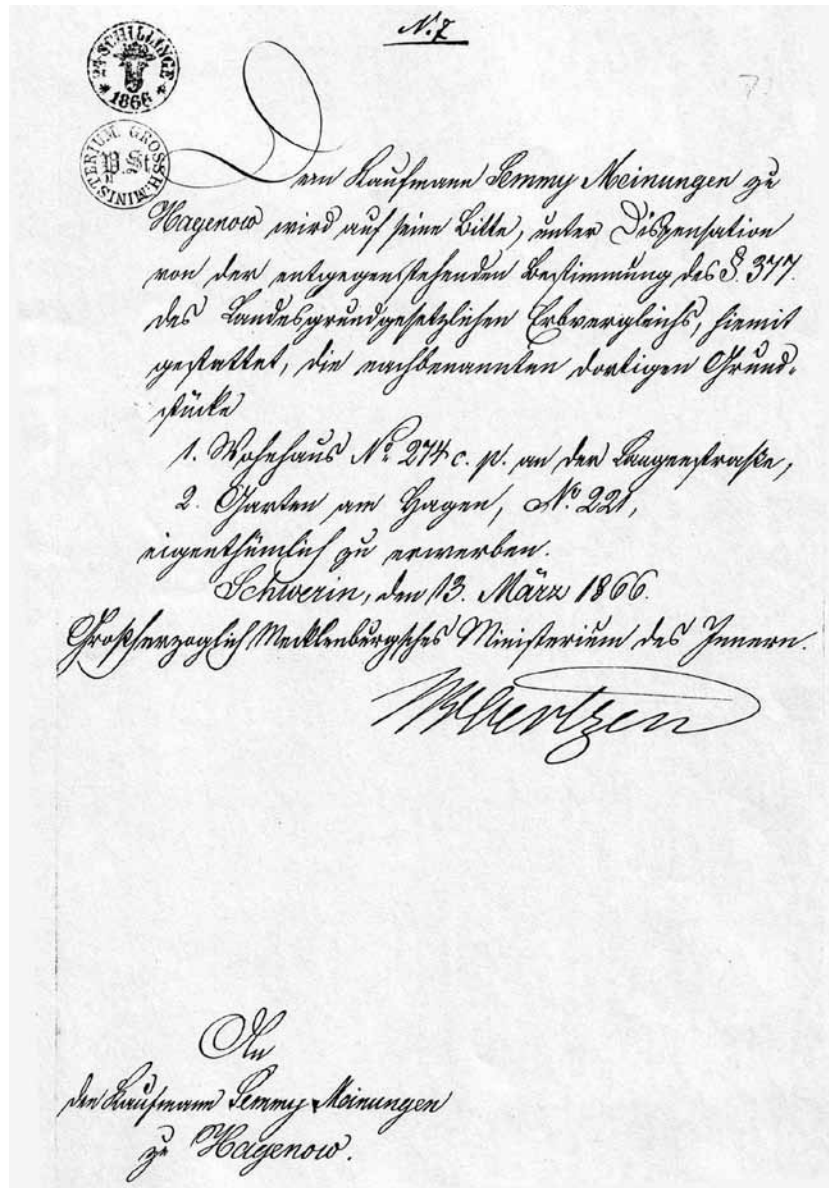 N. 7
24 SCHILLINGE
1866
GROSSH. MINISTERIUM
Dem Kaufmann Semmy Meinungen zu
Hagenow wird auf seine Bitte, unter Dispensation
von der entgegenstehenden Bestimmung des §. 377.
des Landesgrundgesetzlichen Erbvergleichs, hiemit
gestattet, die nachbenannten dortigen Grund-
stücke
1. Wohnhaus No. 274 c. p. an der Langenstraße,
2. Garten am Hagen, No. 221,
eigenthümlich zu erwerben.
Schwerin, den 13. März 1866.
Großherzoglich Mecklenburgsches Ministerium des Innern.
Oertzen
An
den Kaufmann Semmy Meinungen
zu Hagenow.